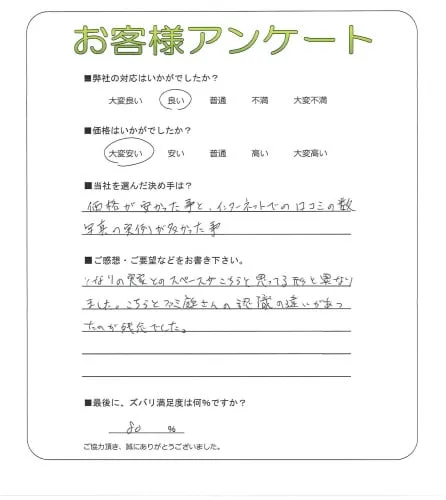 お客様アンケート
■弊社の対応はいかがでしたか？
大変良い 良い 普通 不満 大変不満
■価格はいかがでしたか？
大変安い 安い 普通 高い 大変高い
■当社を選んだ決め手は？
価格が安かった事と、インターネットでの口コミの数
写真の実例が多かった事
■ご感想・ご要望などをお書き下さい。
となりの家とのスペースがこちらと思ってる形と異なり
ました。こちらとファミ庭さんの認識の違いがあっ
たのが残念でした。
■最後に、ズバリ満足度は何%ですか？
80 %
ご協力頂き、誠にありがとうございました。